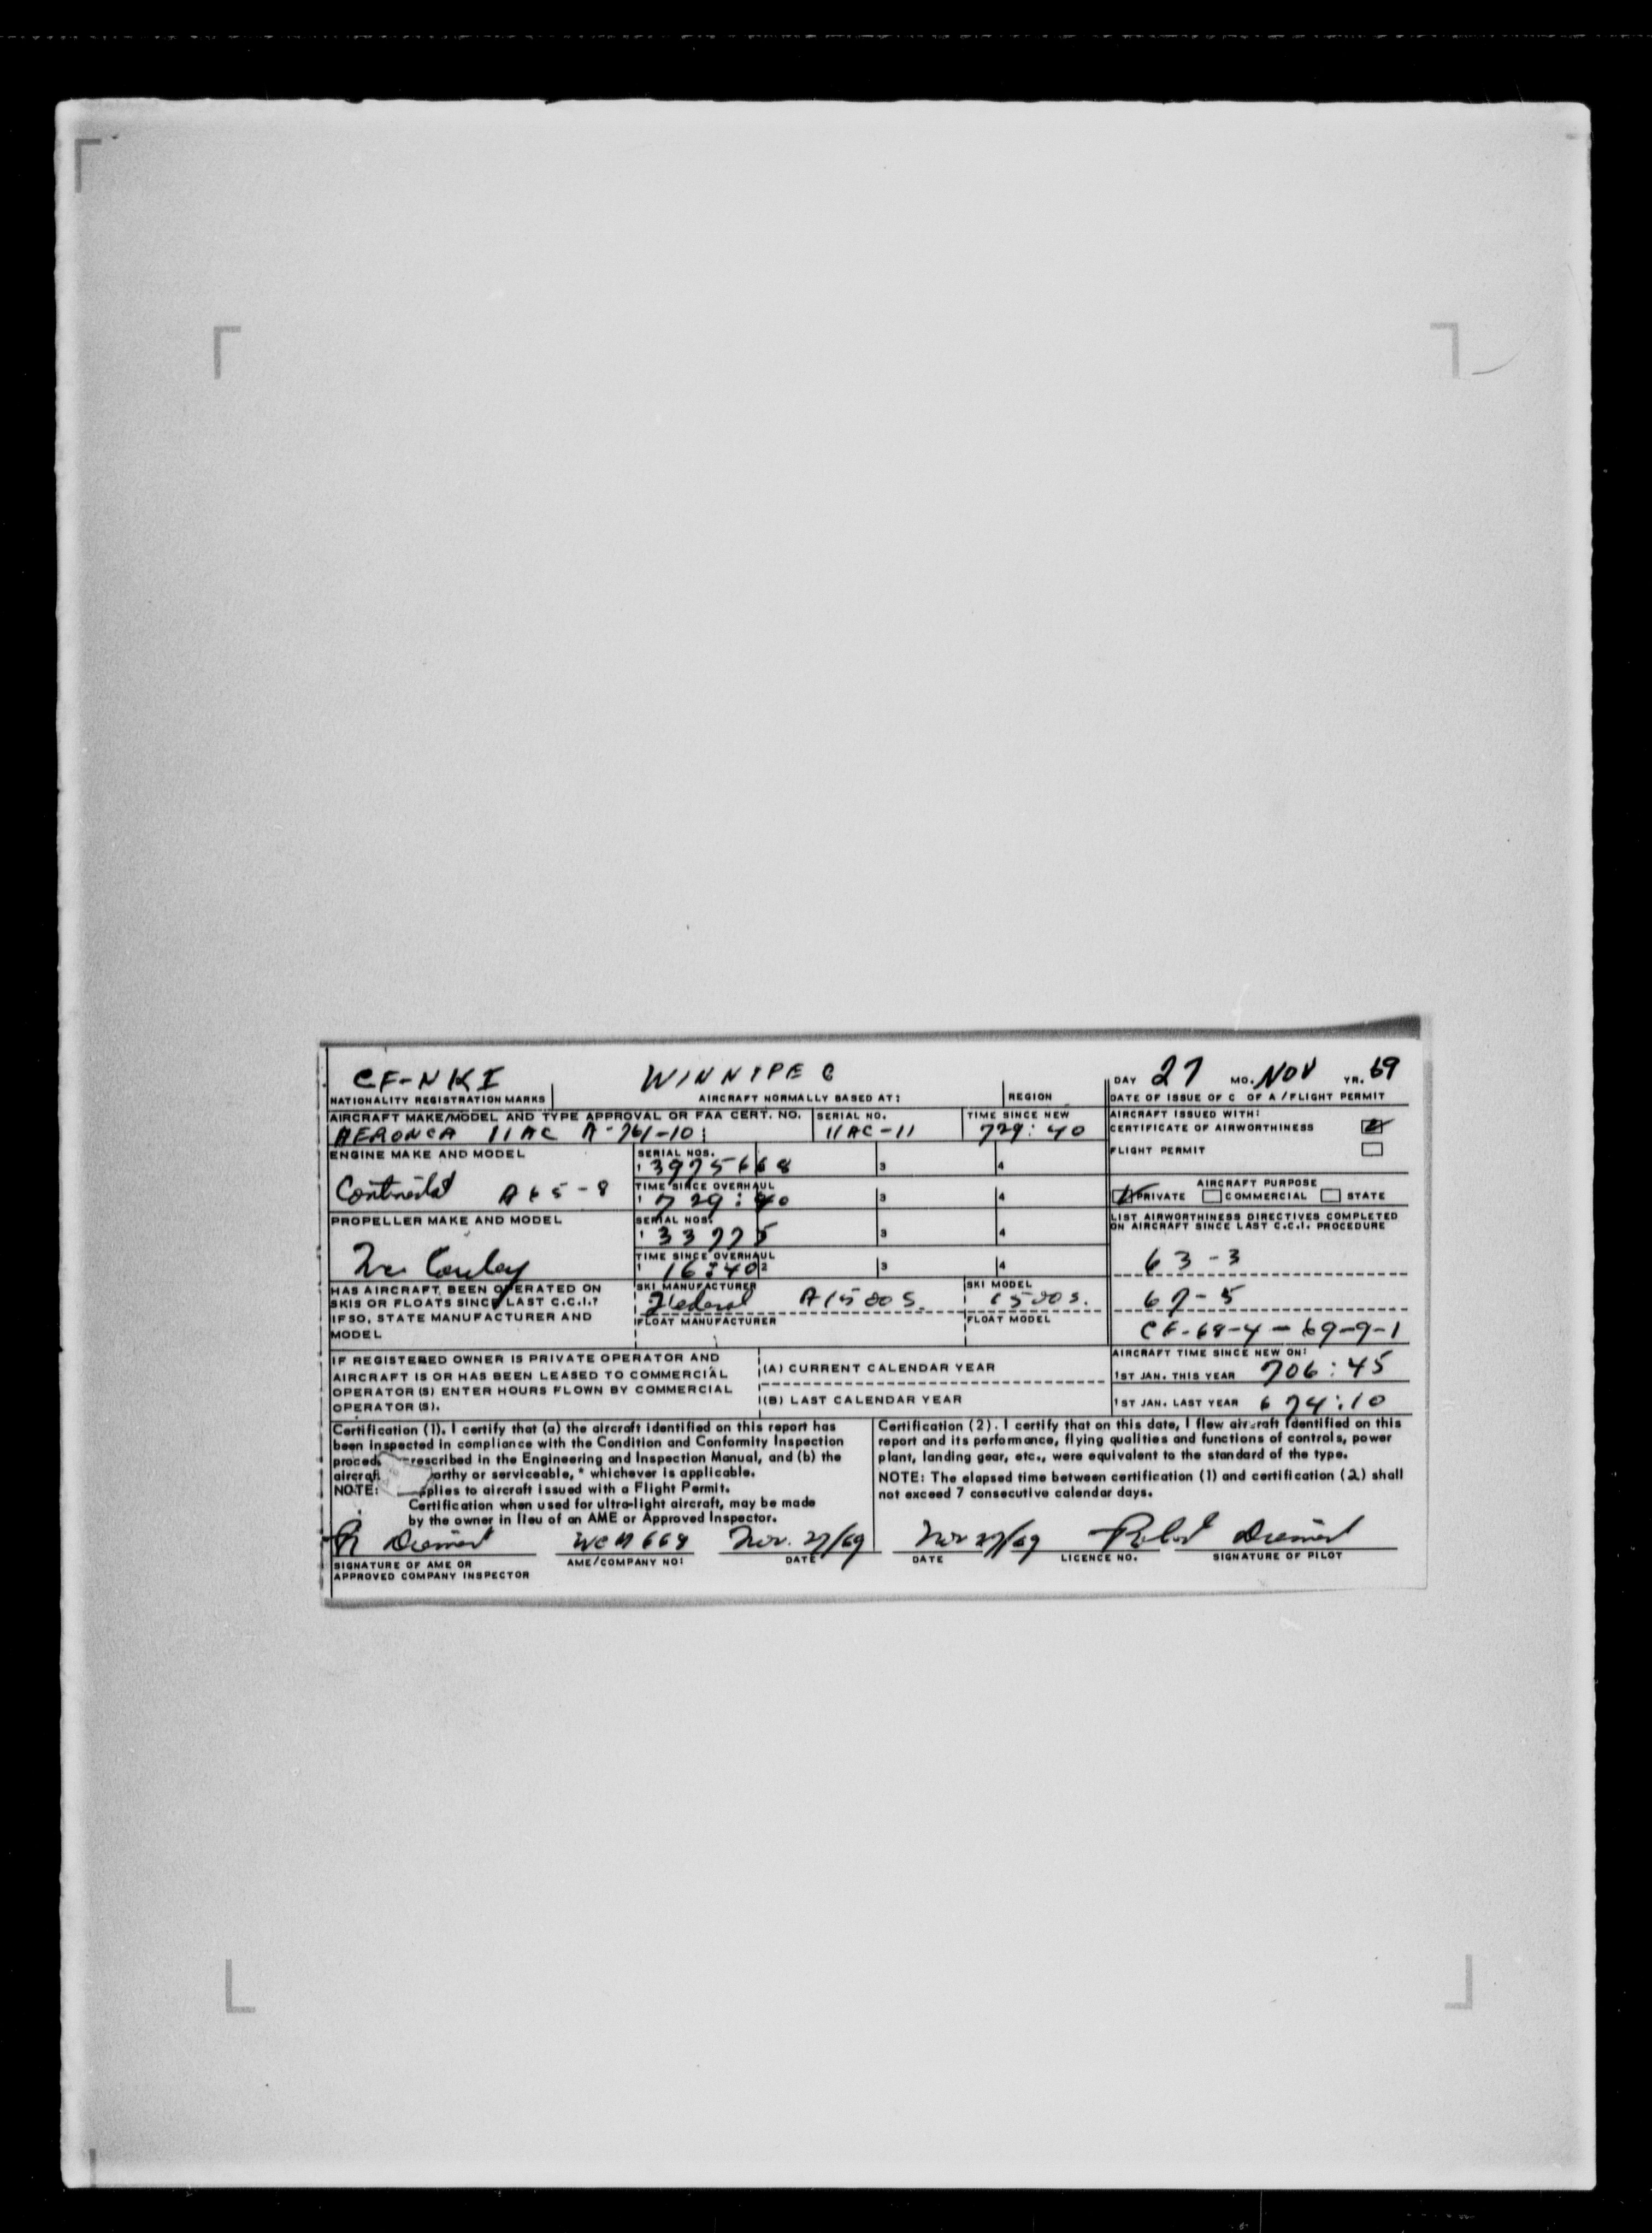 CF-NKI WINNIPEG DAY 27 MO. NOV YR. 69
NATIONALITY REGISTRATION MARKS AIRCRAFT NORMALLY BASED AT: REGION DATE OF ISSUE OF C OF A/FLIGHT PERMIT
AIRCRAFT MAKE/MODEL AND TYPE APPROVAL OR FAA CERT. NO. SERIAL NO. TIME SINCE NEW AIRCRAFT ISSUED WITH:
AERONCA 11AC A-761-10 11AC-11 729:40 CERTIFICATE OF AIRWORTHINESS
ENGINE MAKE AND MODEL SERIAL NOS. FLIGHT PERMIT
1 3975668 3 4
Continental A65-8 TIME SINCE OVERHAUL AIRCRAFT PURPOSE
1 729:40 3 4 PRIVATE COMMERCIAL STATE
PROPELLER MAKE AND MODEL SERIAL NOS. LIST AIRWORTHINESS DIRECTIVES COMPLETED
ON AIRCRAFT SINCE LAST C.C.I. PROCEDURE
1 33775 3 4
McCauley TIME SINCE OVERHAUL 63-3
1 16:40 2 3 4
HAS AIRCRAFT BEEN OPERATED ON SKI MANUFACTURER SKI MODEL
SKIS OR FLOATS SINCE LAST C.C.I.? Federal A1500S. 1500S. 67-5
IF SO, STATE MANUFACTURER AND FLOAT MANUFACTURER FLOAT MODEL
MODEL CF-68-4-69-9-1
IF REGISTERED OWNER IS PRIVATE OPERATOR AND AIRCRAFT TIME SINCE NEW ON:
AIRCRAFT IS OR HAS BEEN LEASED TO COMMERCIAL (A) CURRENT CALENDAR YEAR 1ST JAN. THIS YEAR 706:45
OPERATOR (S) ENTER HOURS FLOWN BY COMMERCIAL
OPERATOR (S). (B) LAST CALENDAR YEAR 1ST JAN. LAST YEAR 674:10
Certification (1). I certify that (a) the aircraft identified on this report has
been inspected in compliance with the Condition and Conformity Inspection
rescribed in the Engineering and Inspection Manual, and (b) the
orthy or serviceable, * whichever is applicable.
NOTE: applies to aircraft issued with a Flight Permit.
Certification when used for ultra-light aircraft, may be made
by the owner in lieu of an AME or Approved Inspector.
Certification (2). I certify that on this date, I flew aircraft identified on this
report and its performance, flying qualities and functions of controls, power
plant, landing gear, etc., were equivalent to the standard of the type.
NOTE: The elapsed time between certification (1) and certification (2) shall
not exceed 7 consecutive calendar days.
R Diemert WCM 668 Nov. 27/69 Nov 27/69 Robert Diemert
SIGNATURE OF AME OR AME/COMPANY NO: DATE DATE LICENCE NO. SIGNATURE OF PILOT
APPROVED COMPANY INSPECTOR